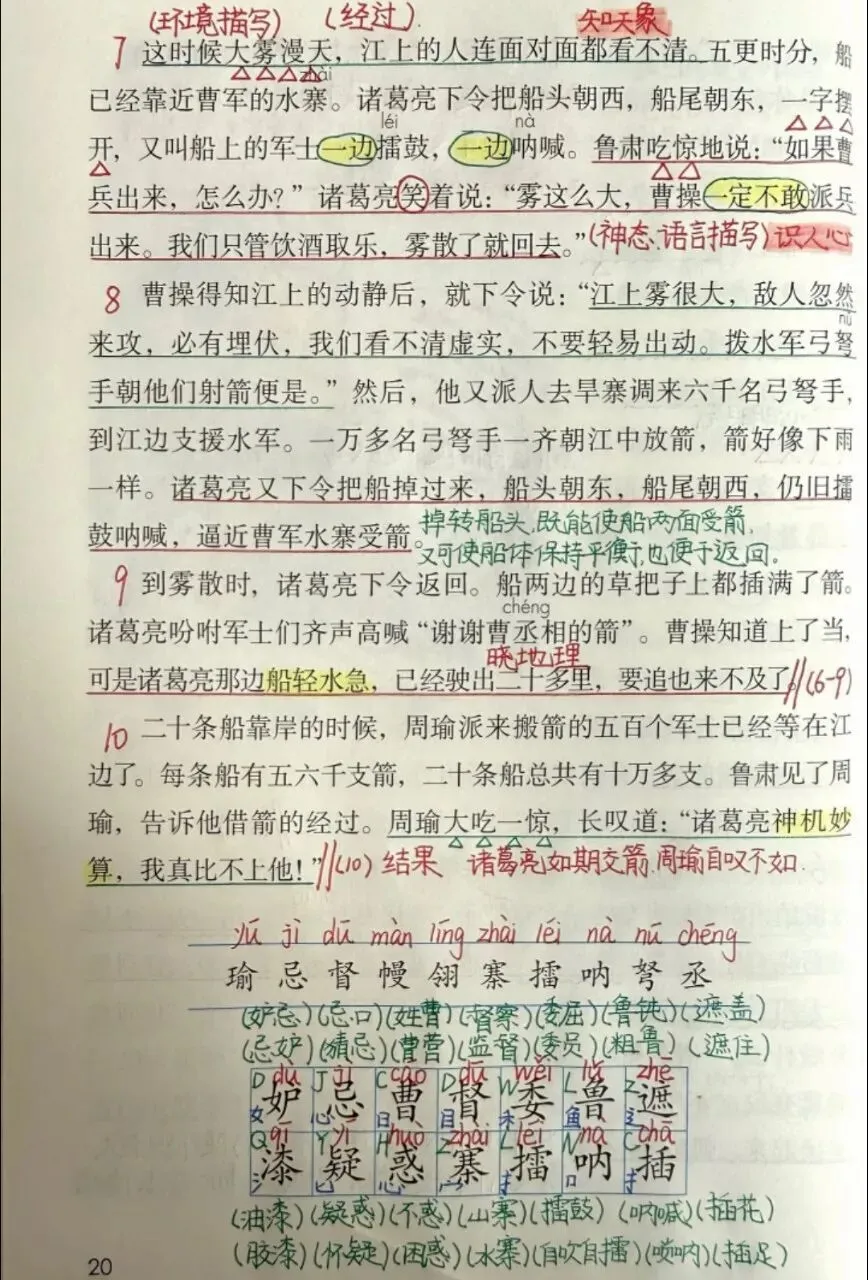 (环境描写) (经过) 知天象
7 这时候大雾漫天，江上的人连面对面都看不清。五更时分，船
zhài
已经靠近曹军的水寨。诸葛亮下令把船头朝西，船尾朝东，一字摆
léi nà
开，又叫船上的军士一边擂鼓，一边呐喊。鲁肃吃惊地说：“如果曹
兵出来，怎么办？”诸葛亮笑着说：“雾这么大，曹操一定不敢派兵
出来。我们只管饮酒取乐，雾散了就回去。”(神态.语言描写) 识人心
8 曹操得知江上的动静后，就下令说：“江上雾很大，敌人忽然
nǔ
来攻，必有埋伏，我们看不清虚实，不要轻易出动。拨水军弓弩
手朝他们射箭便是。”然后，他又派人去旱寨调来六千名弓弩手，
到江边支援水军。一万多名弓弩手一齐朝江中放箭，箭好像下雨
一样。诸葛亮又下令把船掉过来，船头朝东，船尾朝西，仍旧擂
鼓呐喊，逼近曹军水寨受箭。掉转船头,既能使船两面受箭,
又可使船体保持平衡,也便于返回.
9 到雾散时，诸葛亮下令返回。船两边的草把子上都插满了箭。
chéng
诸葛亮吩咐军士们齐声高喊“谢谢曹丞相的箭”。曹操知道上了当，
晓地理
可是诸葛亮那边船轻水急，已经驶出二十多里，要追也来不及了。//(6-9)
10 二十条船靠岸的时候，周瑜派来搬箭的五百个军士已经等在江
边了。每条船有五六千支箭，二十条船总共有十万多支。鲁肃见了周
瑜，告诉他借箭的经过。周瑜大吃一惊，长叹道：“诸葛亮神机妙
算，我真比不上他！”//(10) 结果 诸葛亮如期交箭.周瑜自叹不如.
yú jì dū màn líng zhài léi nà nǔ chéng
瑜 忌 督 幔 翎 寨 擂 呐 弩 丞
(妒忌) (忌口) (姓曹) (督察) (委屈) (鲁钝) (遮盖)
(忌妒) (猜忌) (曹营) (监督) (委员) (粗鲁) (遮住)
D dù J jì C cáo D dū W wěi L lǔ Z zhē
妒 忌 曹 督 委 鲁 遮
女 心 日 目 禾 鱼 辶
Q qī Y yí H huò Z zhài L léi N nà C chā
漆 疑 惑 寨 擂 呐 插
氵 心 宀 扌 口 扌
(油漆) (疑惑) (不惑) (山寨) (擂鼓) (呐喊) (插花)
(胶漆) (怀疑) (困惑) (水寨) (自吹自擂) (唢呐) (插足)
20